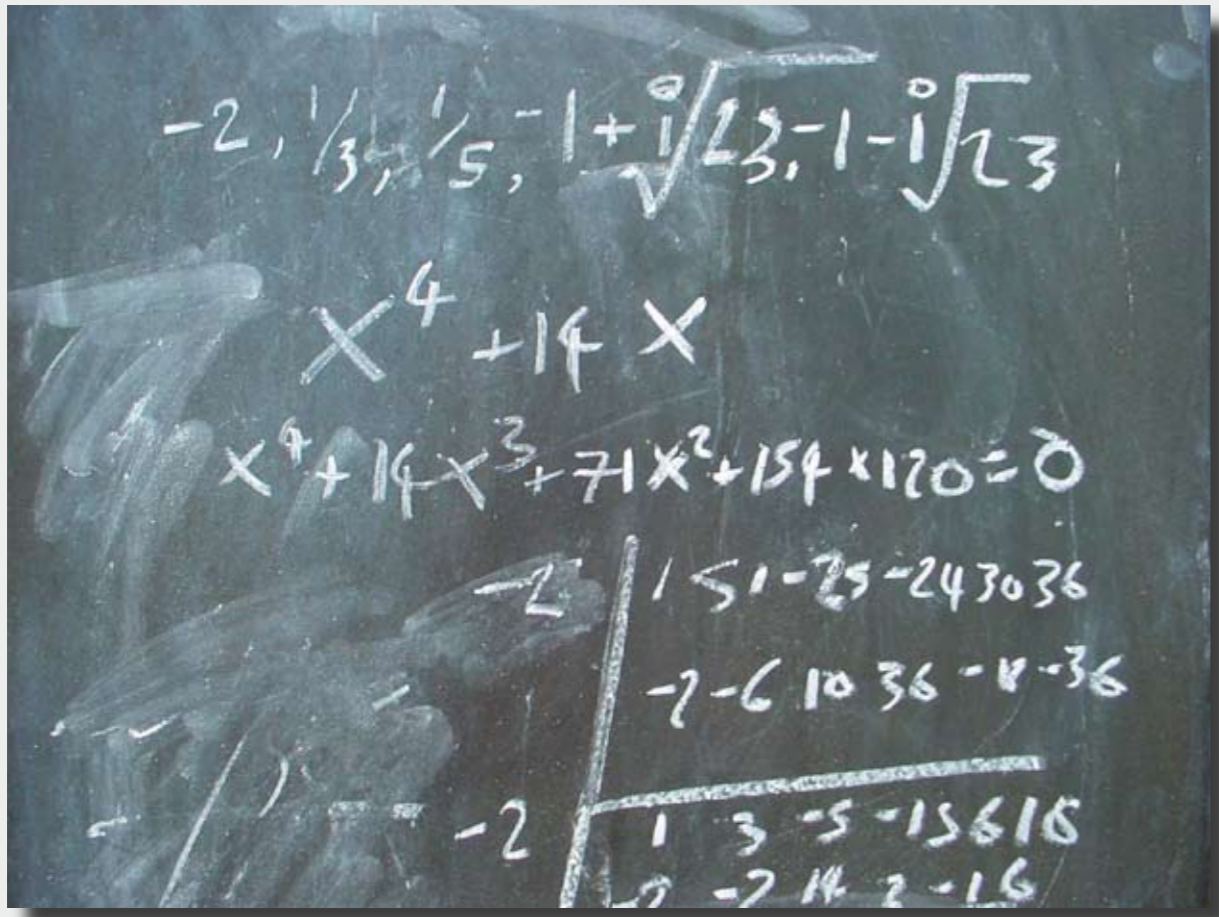 -2, 1/3, 1/5, -1+i√23, -1-i√23
x⁴ +14 x
x⁴+14x³+71x²+154x120=0
-2 | 1 5 1 -25 -24 30 36
-2 -6 10 36 -36
-2 | 1 3 -5 -15 6 18
-2 14 2 -16